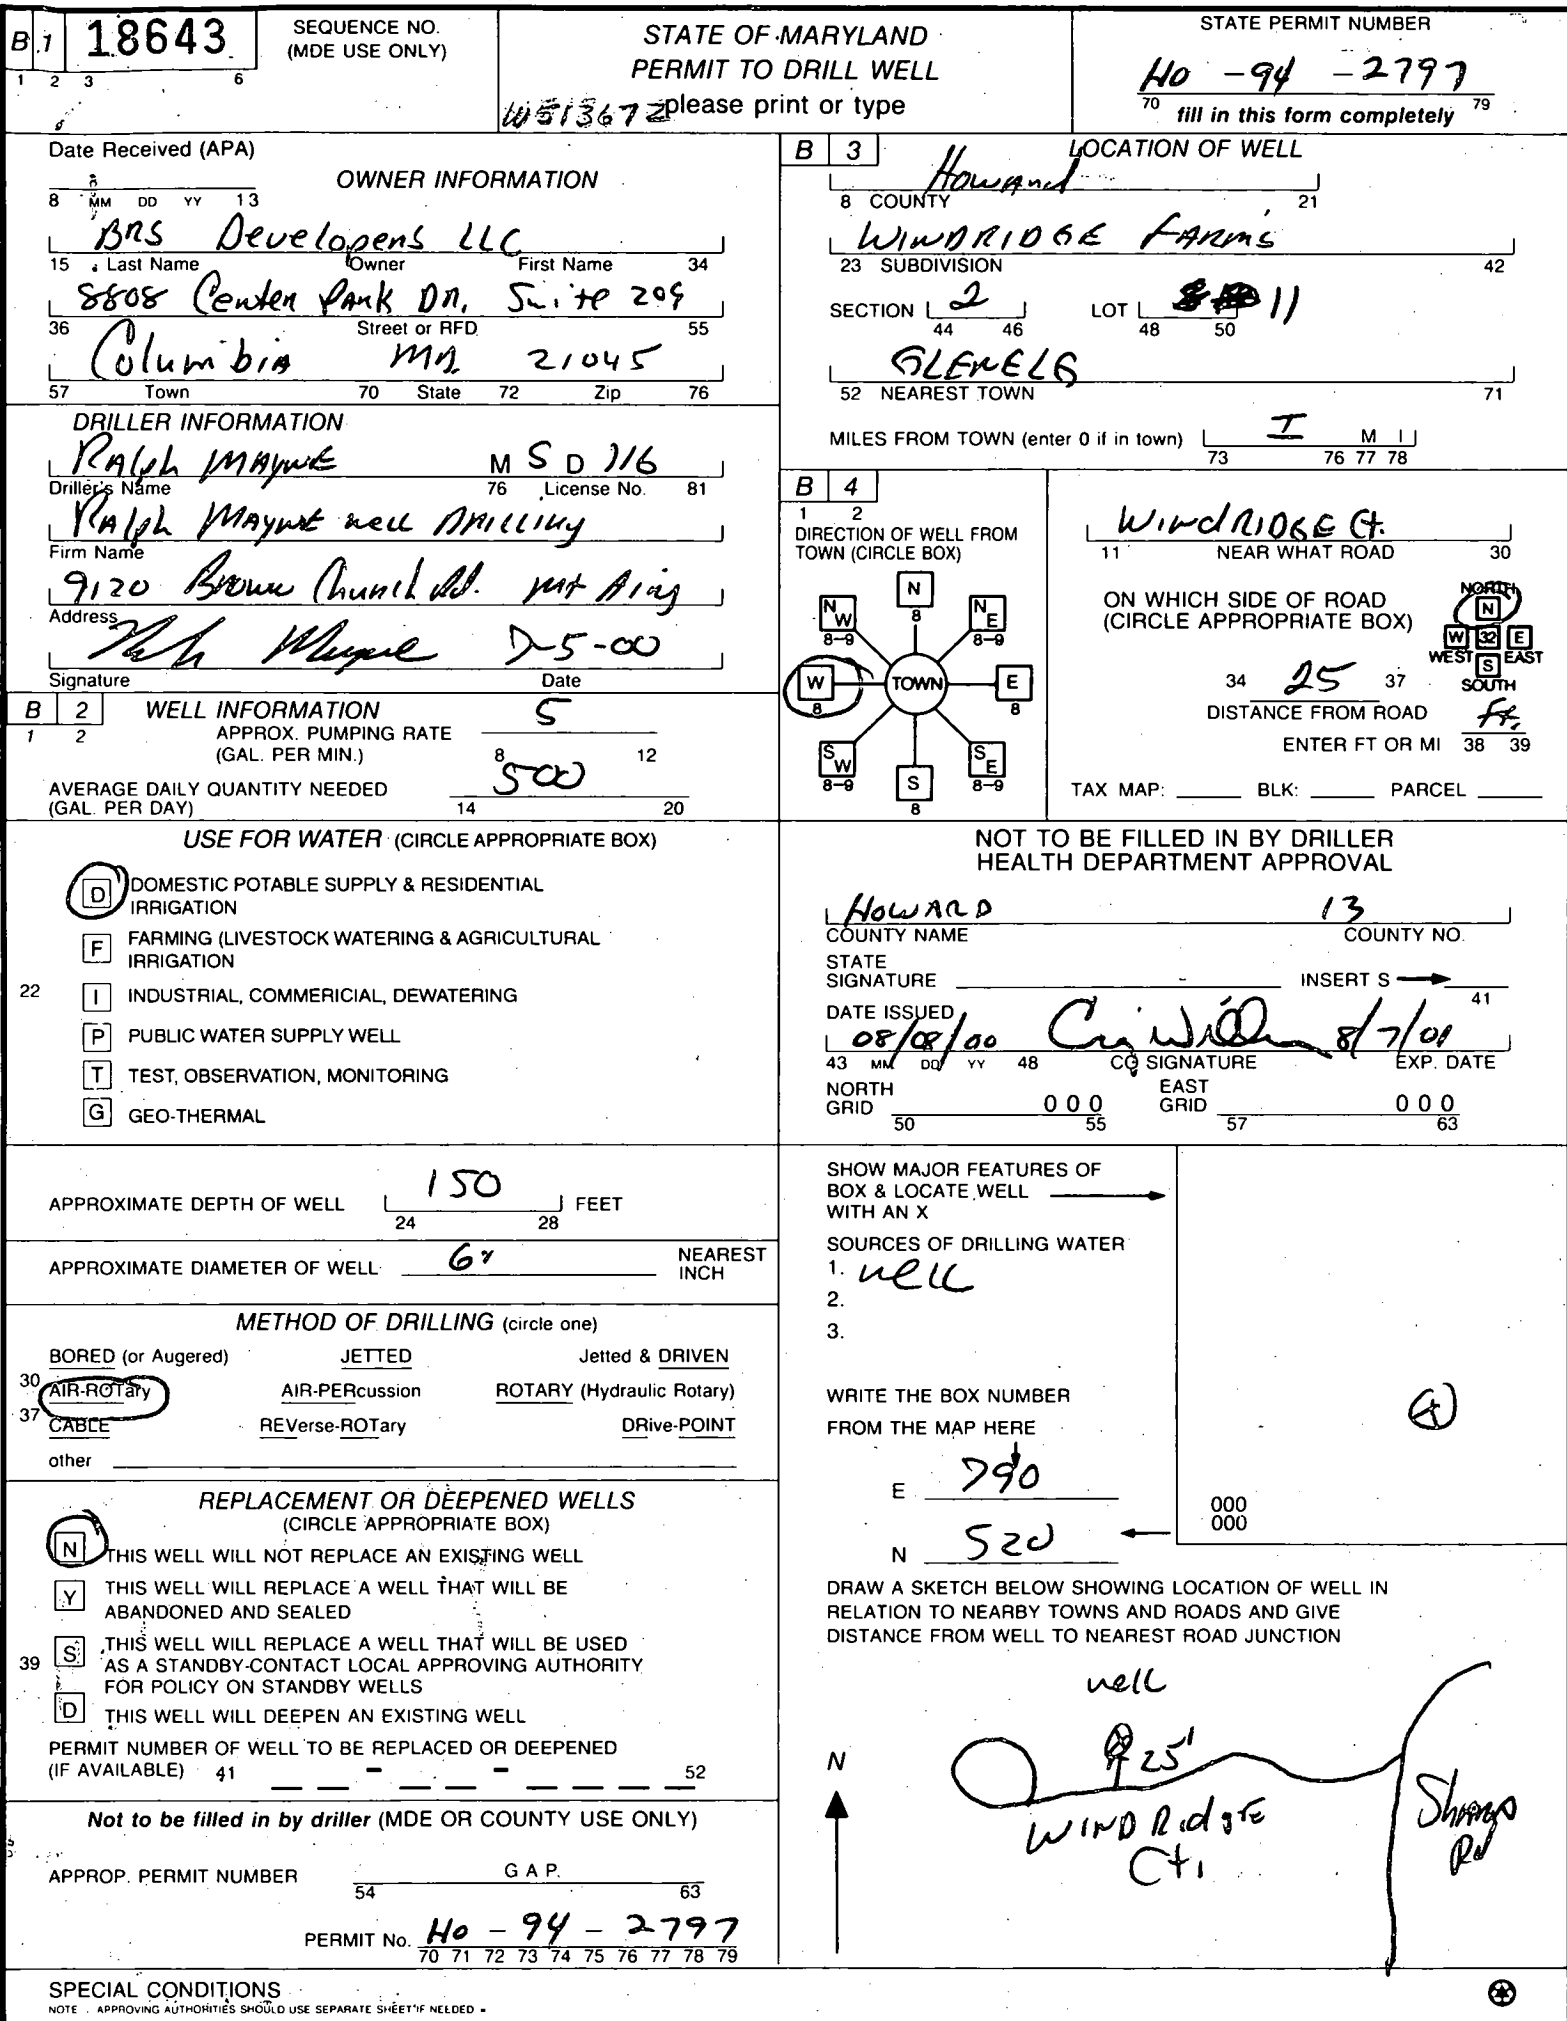 B 1 18643 SEQUENCE NO. (MDE USE ONLY)
1 2 3 6
STATE OF MARYLAND
PERMIT TO DRILL WELL
W513672 please print or type
STATE PERMIT NUMBER
Ho - 94 - 2797
70 79
fill in this form completely
Date Received (APA)
8 MM DD YY 13
OWNER INFORMATION
BRS Developers LLC
15 Last Name Owner First Name 34
8808 Center Park Dr. Suite 209
36 Street or RFD 55
Columbia MD. 21045
57 Town 70 State 72 Zip 76
DRILLER INFORMATION
Ralph Mayne M S D 116
Driller's Name 76 License No. 81
Ralph Mayne well Drilling
Firm Name
9120 Brown Church Rd. Mt Airy
Address
Signature Date
B 2 WELL INFORMATION
1 2
APPROX. PUMPING RATE
(GAL. PER MIN.) 5
8 12
AVERAGE DAILY QUANTITY NEEDED
(GAL. PER DAY) 500
14 20
USE FOR WATER (CIRCLE APPROPRIATE BOX)
D DOMESTIC POTABLE SUPPLY & RESIDENTIAL
IRRIGATION
F FARMING (LIVESTOCK WATERING & AGRICULTURAL
IRRIGATION
22 I INDUSTRIAL, COMMERICIAL, DEWATERING
P PUBLIC WATER SUPPLY WELL
T TEST, OBSERVATION, MONITORING
G GEO-THERMAL
APPROXIMATE DEPTH OF WELL 150 FEET
24 28
APPROXIMATE DIAMETER OF WELL 6" NEAREST
INCH
METHOD OF DRILLING (circle one)
BORED (or Augered) JETTED Jetted & DRIVEN
30 AIR-ROTary AIR-PERcussion ROTARY (Hydraulic Rotary)
37 CABLE REVerse-ROTary DRive-POINT
other
REPLACEMENT OR DEEPENED WELLS
(CIRCLE APPROPRIATE BOX)
N THIS WELL WILL NOT REPLACE AN EXISTING WELL
Y THIS WELL WILL REPLACE A WELL THAT WILL BE
ABANDONED AND SEALED
39 S THIS WELL WILL REPLACE A WELL THAT WILL BE USED
AS A STANDBY-CONTACT LOCAL APPROVING AUTHORITY
FOR POLICY ON STANDBY WELLS
D THIS WELL WILL DEEPEN AN EXISTING WELL
PERMIT NUMBER OF WELL TO BE REPLACED OR DEEPENED
(IF AVAILABLE) 41 - - 52
Not to be filled in by driller (MDE OR COUNTY USE ONLY)
APPROP. PERMIT NUMBER G A P.
54 63
PERMIT No. Ho - 94 - 2797
70 71 72 73 74 75 76 77 78 79
SPECIAL CONDITIONS
NOTE - APPROVING AUTHORITIES SHOULD USE SEPARATE SHEET IF NEEDED
B 3 LOCATION OF WELL
Howard
8 COUNTY 21
WINDRIDGE FARMS
23 SUBDIVISION 42
SECTION 2 LOT 11
44 46 48 50
GLENELG
52 NEAREST TOWN 71
MILES FROM TOWN (enter 0 if in town) M I
73 76 77 78
B 4
1 2
DIRECTION OF WELL FROM
TOWN (CIRCLE BOX)
N 8
NW 8-9 NE 8-9
W 8 TOWN E 8
SW 8-9 SE 8-9
S 8
WINDRIDGE Ct.
11 NEAR WHAT ROAD 30
ON WHICH SIDE OF ROAD
(CIRCLE APPROPRIATE BOX)
NORTH
N
W 32 E
WEST S EAST
SOUTH
34 25 37
DISTANCE FROM ROAD ft.
ENTER FT OR MI 38 39
TAX MAP: BLK: PARCEL
NOT TO BE FILLED IN BY DRILLER
HEALTH DEPARTMENT APPROVAL
HOWARD 13
COUNTY NAME COUNTY NO.
STATE
SIGNATURE INSERT S
41
DATE ISSUED
08/08/00 8/7/01
43 MM DD YY 48 CO SIGNATURE EXP. DATE
NORTH
GRID 0 0 0
50 55
EAST
GRID 0 0 0
57 63
SHOW MAJOR FEATURES OF
BOX & LOCATE WELL
WITH AN X
SOURCES OF DRILLING WATER
1. well
2.
3.
WRITE THE BOX NUMBER
FROM THE MAP HERE
E 790
N 520
000
000
DRAW A SKETCH BELOW SHOWING LOCATION OF WELL IN
RELATION TO NEARBY TOWNS AND ROADS AND GIVE
DISTANCE FROM WELL TO NEAREST ROAD JUNCTION
well
25'
N
WINDRidge
Ct.
Rd